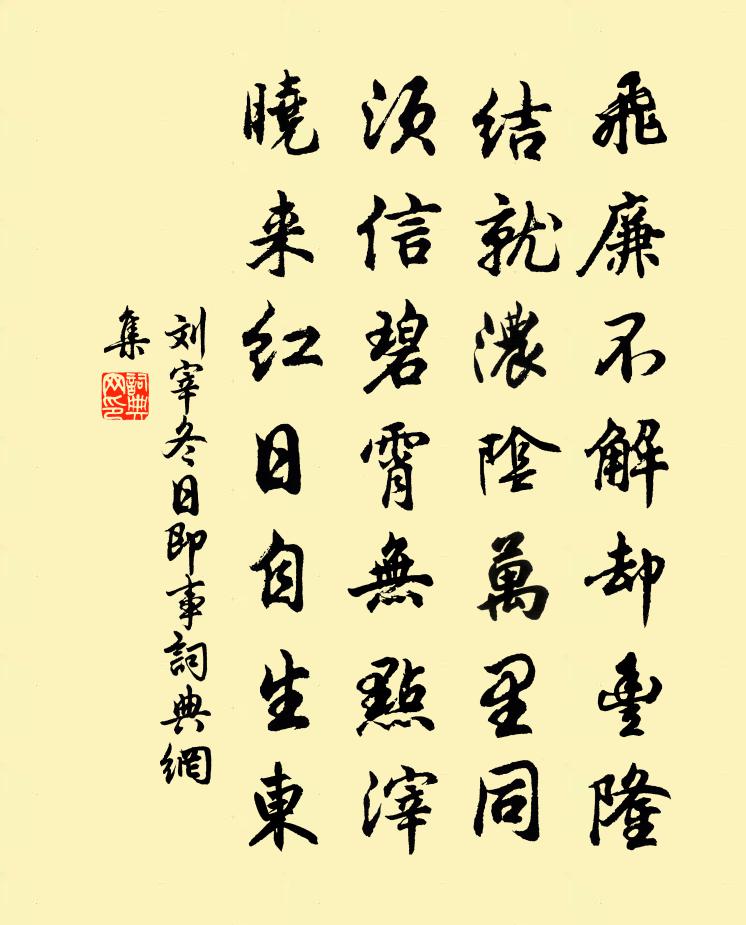 飛廉不解却豊隆
結就濃陰萬里同
須信碧霄無點滓
曉来紅日自生東
刘宰冬日即事詞典網
集
詞典
网印